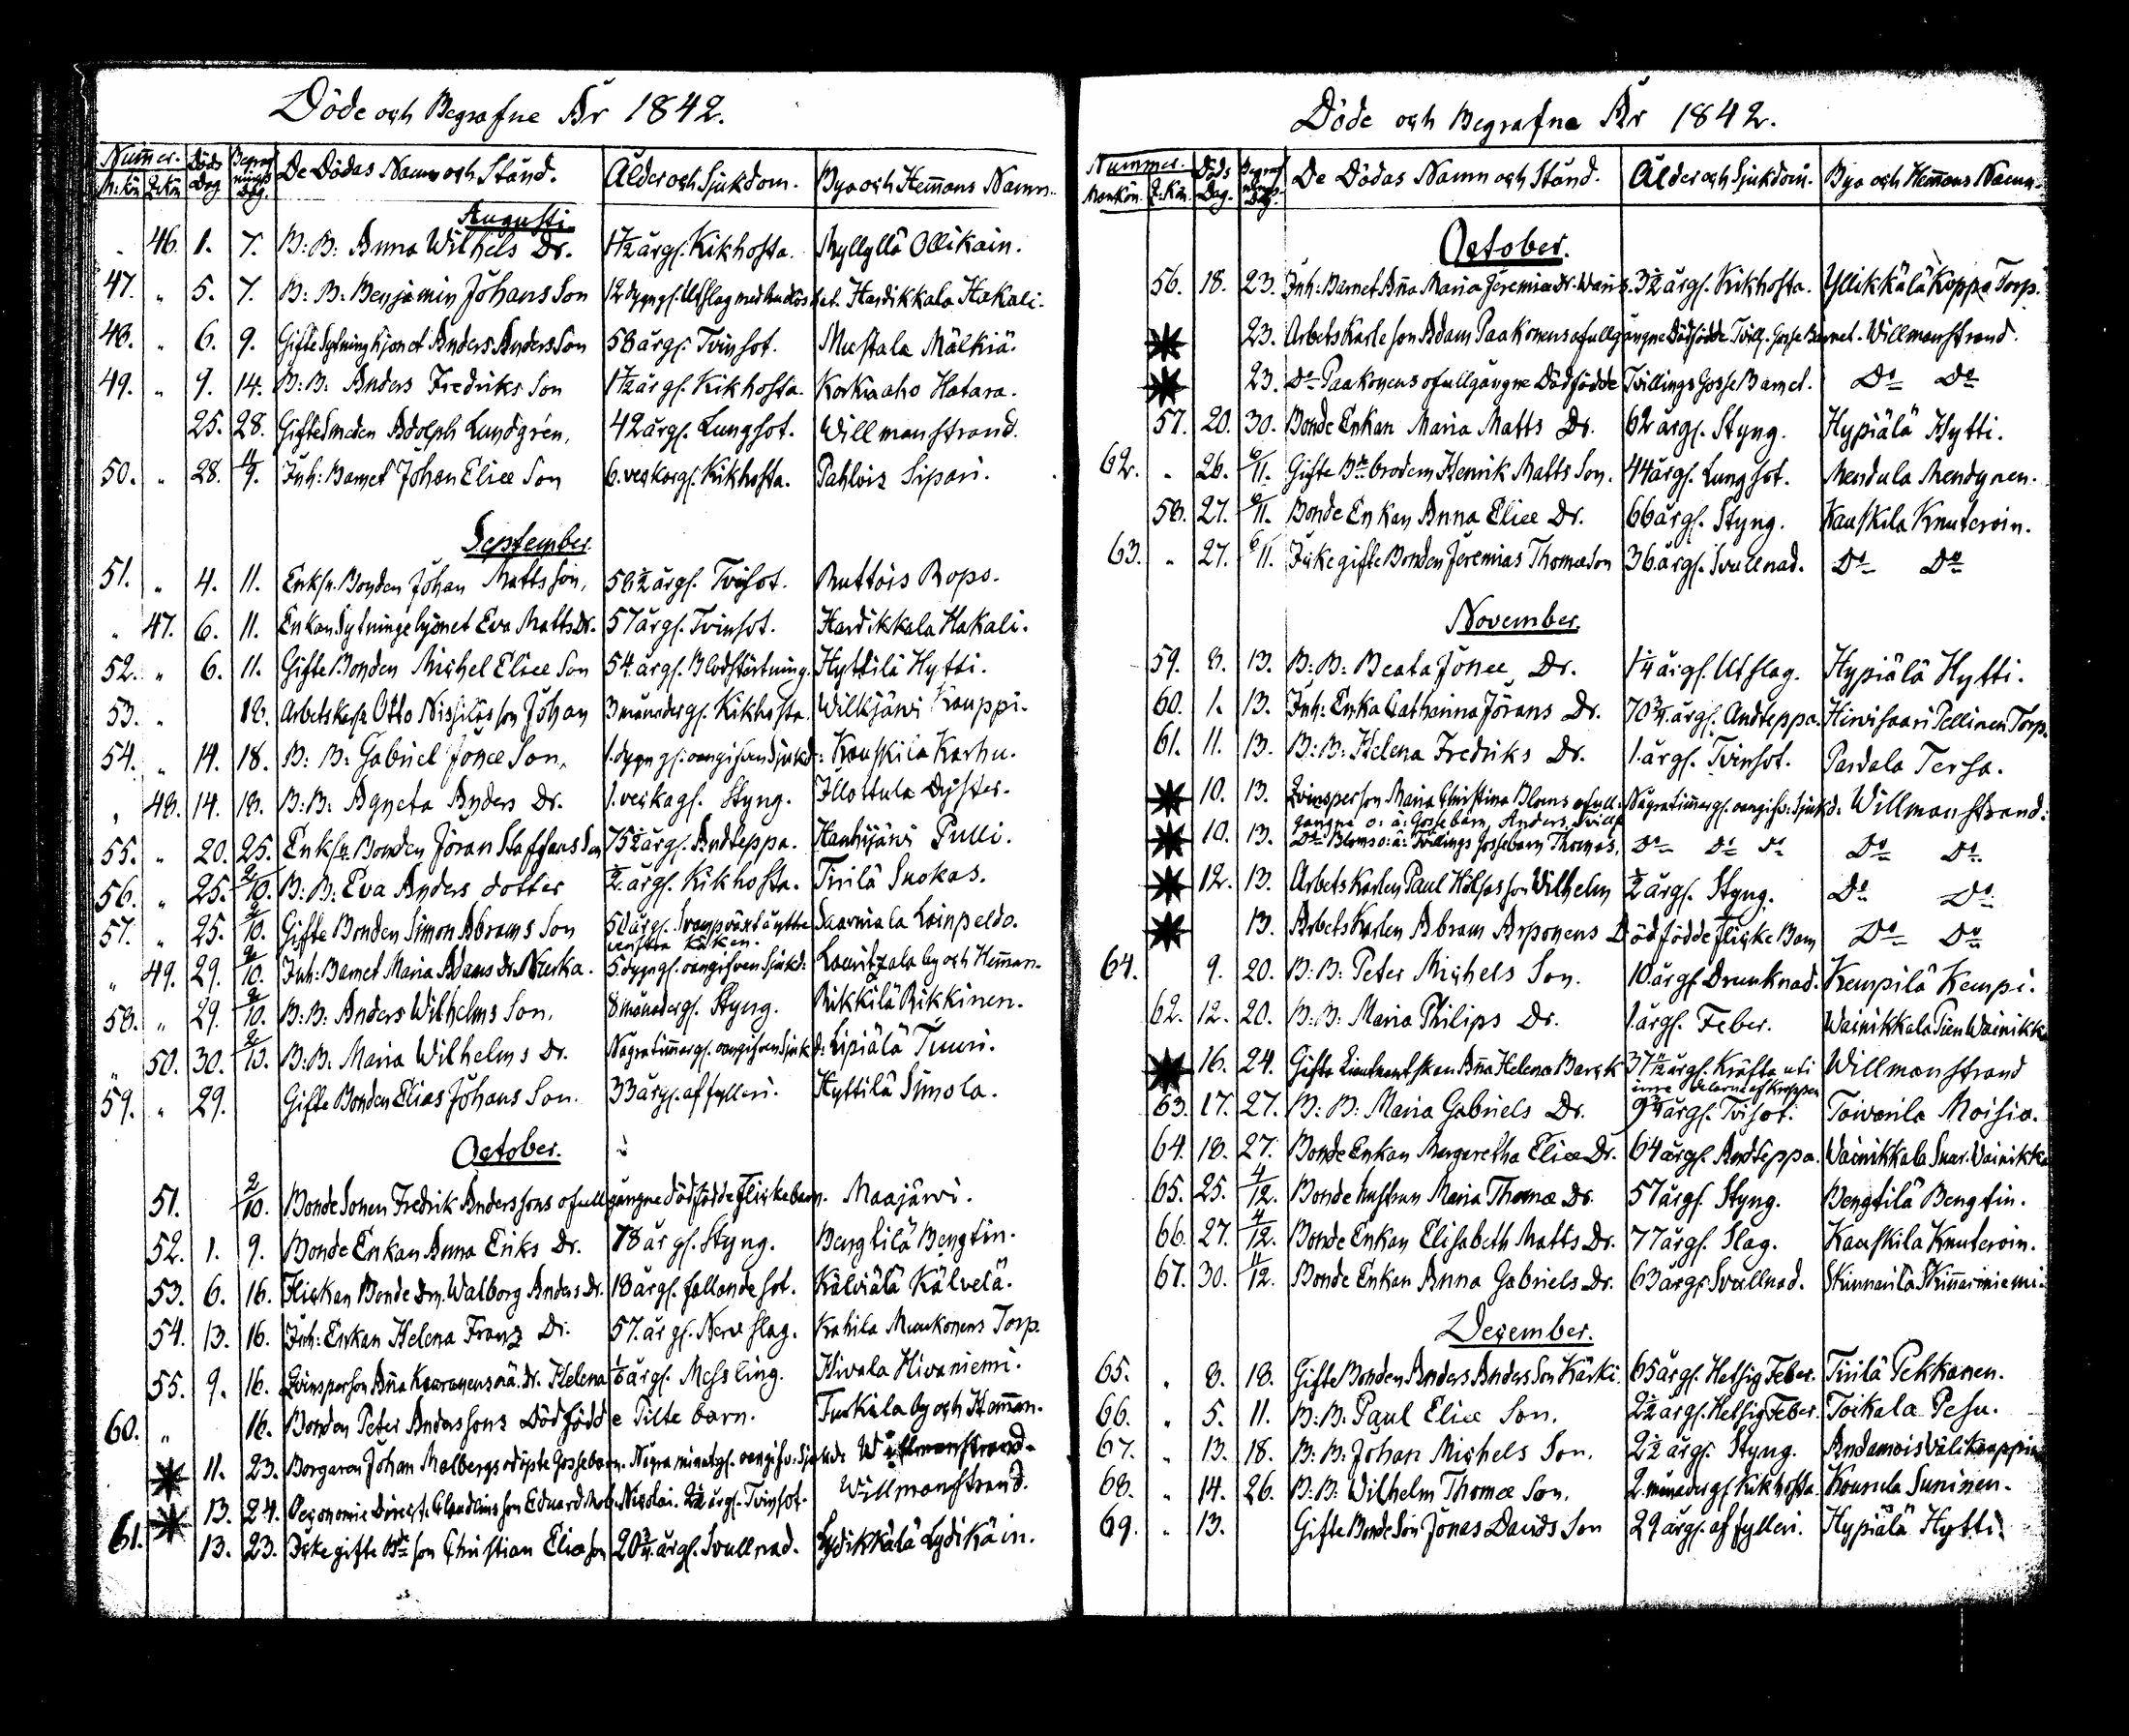 Döde och Begrafne År 1842.
Num̅er. Döds Dag Begraf nings Dag. De Dödas Namn och Stånd. Ålder och Sjukdom. Bya och Hem̅ans Namn.
M:kön Q:kön
Augusti.
46. 1. 7. B: B: Anna Wilhels Dr. 1 1/2 årgl. Kikhosta. Myllylä Ollikain.
47. " 5. 7. B: B: Benjamin Johans Son 12 dygngl. Utslag med Hardikkala Hakali.
48. " 6. 9. Gifte Sytnings hjonet Anders Anders Son 58 årgl. Tvinsot. Mustala Mälkiä.
49. " 9. 14. B: B: Anders Fredriks Son 1 1/2 årgl. Kikhosta. Korkiaho Hatara.
25. 28. Gifte Smeden Adolph Lundgrén, 42 årgl. Lungsot. Willmanstrand.
50. " 28. 4/9. Inh: Barnet Johan Eliæ Son 6. veckorgl. Kikhosta. Pahlois Sipari.
September.
51. " 4. 11. Enkl. Bonden Johan Matts Son, 58 1/2 årgl. Tvisot. Ruttois Ropo.
" 47. 6. 11. Enkan Sytningehjonet Eva Matts Dr. 57 årgl. Tvinsot. Hardikkala Hakali.
52. " 6. 11. Gifte Bonden Michel Eliæ Son 54 årgl. Blodstörtning. Hyttilä Hytti.
53. " 18. Arbetskarln Otto Nissiläs son Johan 3 månadergl. Kikhosta. Wilkjärwi Kauppi.
54. " 14. 18. B: B: Gabriel Jonæ Son, 1. dygngl. oangifven Sjukd: Kauskila Karhu.
" 48. 14. 18. B: B: Agneta Anders Dr. 1. veckagl. Styng. Illottula Dyster.
55. " 20. 25. Enkl. Bonden Jöran Staffans Son 75 1/2 årgl. Andteppa. Hanhijärwi Pulli.
56. " 25. 2/10. B: B: Eva Anders dotter 1/2 årgl. Kikhosta. Tirilä Suokas.
57. " 25. 2/10. Gifte Bonden Simon Abrams Son 50 årgl. Svampväxt å yttre venstra käken. Saarniala Loinpeldo.
" 49. 29. 2/10. Inh: Barnet Maria Adams Dr. Nurka. 5. dygngl. oangifven Sjukd: Lauritzala by och Hem̅an.
58. " 29. 2/10. B: B: Anders Wilhelms Son, 8 månadergl. Styng. Rikkilä Rikkinen.
" 50. 30. 2/10. B: B: Maria Wilhelms Dr. Några tim̅argl. oangifven Sjukd: Lipiälä Tuuri.
59. " 29. Gifte Bonden Elias Johans Son. 33 årgl. af fylleri. Hyttilä Simola.
October.
51. 2/10. Bonde Sonen Fredrik Anderssons ofullgångne dödfödde Flickebarn. Maajärwi.
52. 1. 9. Bonde Enkan Anna Eriks Dr. 78 årgl. Styng. Bengtilä Bengtin.
53. 6. 16. Flickan Bonde Dn. Walborg Anders Dr. 18 årgl. fallande sot. Kälviälä Kälvelä.
54. 13. 16. Inh: Enkan Helena Frans Dr. 57. årgl. Nerv slag. Kahila Muukonens Torp.
55. 9. 16. Qvinsperson An̅a Kaaranens oä. Dr. Helena årgl. Messling. Hivala Hivaniemi.
60. " 16. Bonden Peter Anderssons Dödfödde Piltebarn. Turkiala by och Hem̅an.
✷ 11. 23. Borgaren Johan Malbergs odöpte Gossebarn. Några minutgl. oangifv: Sjukd: Willmanstrand.
✷ 13. 24. Oeconomie Direct. son Eduard Nicolai. 2 1/2 årgl. Tvinsot. Willmanstrand.
61. 13. 23. Icke gifte Bde son Christian Eliæ son 20 3/4 årgl. Svullnad. Lydikkälä Lydikäin.
Döde och Begrafne År 1842.
Nummer. Döds Dag. Begraf nings Dag. De Dödas Namn och Stånd. Ålder och Sjukdom. Bya och Hem̅ans Namn.
Mankön. Q:Kön.
October.
56. 18. 23. Inh: Barnet An̅a Maria Jeremiæ Dr. 3 1/2 årgl. Kikhosta. Yllikkälä Koppa Torp.
✷ 23. Arbets Karlesson Adam Paakonens ofullgångne Dödfödde Tvill. Gosse Barnet. Willmanstrand.
✷ 23. Do Paakonens ofullgångne Dödfödde Tvillings Gosse Barnet. Do Do
57. 20. 30. Bonde Enkan Maria Matts Dr. 62 årgl. Styng. Hypiälä Hytti.
62. " 26. 6/11. Gifte Bde brodern Henrik Matts Son. 44 årgl. Lungsot. Mendula Mendynen.
58. 27. 6/11. Bonde Enkan Anna Eliæ Dr. 66 årgl. Styng. Kauskila Knuteroin.
63. " 27. 6/11. Icke gifte Bonden Jeremias Thomæ son 36 årgl. Svullnad. Do Do
November.
59. 8. 13. B: B: Beata Jonæ Dr. 1 1/4 årgl. Utslag. Hypiälä Hytti.
60. 1. 13. Inh: Enka Catharina Jörans Dr. 70 3/4 årgl. Andteppa. Hirvisaari Pellinen Torp.
61. 11. 13. B: B: Helena Fredriks Dr. 1. årgl. Tvinsot. Pardala Tersa.
✷ 10. 13. Qvinsperson Maria Christina Bloms ofull: gångne o: ä: Gossebarn, Anders. Tvill: Några tim̅argl. oangifv: Sjukd: Willmanstrand:
✷ 10. 13. Do Bloms o: ä: Tvillings Gossebarn Thomas, Do Do Do Do Do
✷ 12. 13. Arbets Karlen, Paul son Wilhelm 1/2 årgl. Styng. Do Do
✷ 13. Arbets Karlen Abram Arponens Dödfödde Flicke Barn Do Do
64. 9. 20. B: B: Peter Michels Son. 10. årgl. Drunknad. Kempilä Kempi.
62. 12. 20. B: B: Maria Philips Dr. 1. årgl. Feber. Wainikkala Pien Wainikka
✷ 16. 24. Gifta Lieutnantskan An̅a Helena Barck 37 årgl. Kräfta uti inre delarne af kroppen Willmanstrand
63. 17. 27. B: B: Maria Gabriels Dr. 9 3/4 årgl. Tvisot. Toivarila Moisio.
64. 18. 27. Bonde Enkan Margaretha Eliæ Dr. 64 årgl. Andteppa. Wainikkala Suur. Wainikka
65. 25. 4/12. Bonde hustrun Maria Thomæ Dr. 57 årgl. Styng. Bengtilä Bengtin.
66. 27. 4/12. Bonde Enkan Elisabeth Matts Dr. 77 årgl. Slag. Kauskila Knuteroin.
67. 30. 11/12. Bonde Enkan Anna Gabriels Dr. 63 årgl. Svullnad. Skinnarila Skin̅ariniemi.
December.
65. " 8. 18. Gifte Bonden Anders Anders Son Kärki. 65 årgl. Hetsig Feber. Tirilä Pekkanen.
66. " 5. 11. B: B: Paul Eliæ Son. 2 1/2 årgl. Hetsig Feber. Toikala Pesu.
67. " 13. 18. B: B: Johan Michels Son. 2 1/2 årgl. Styng. Andamois Välikauppin
68. " 14. 26. B: B: Wilhelm Thomæ Son. 2. månadergl. Kikhosta. Kourula Suninen.
69. " 13. Gifte Bonde Son Jonas Davids Son 29 årgl. af fylleri. Hypiälä Hytti.